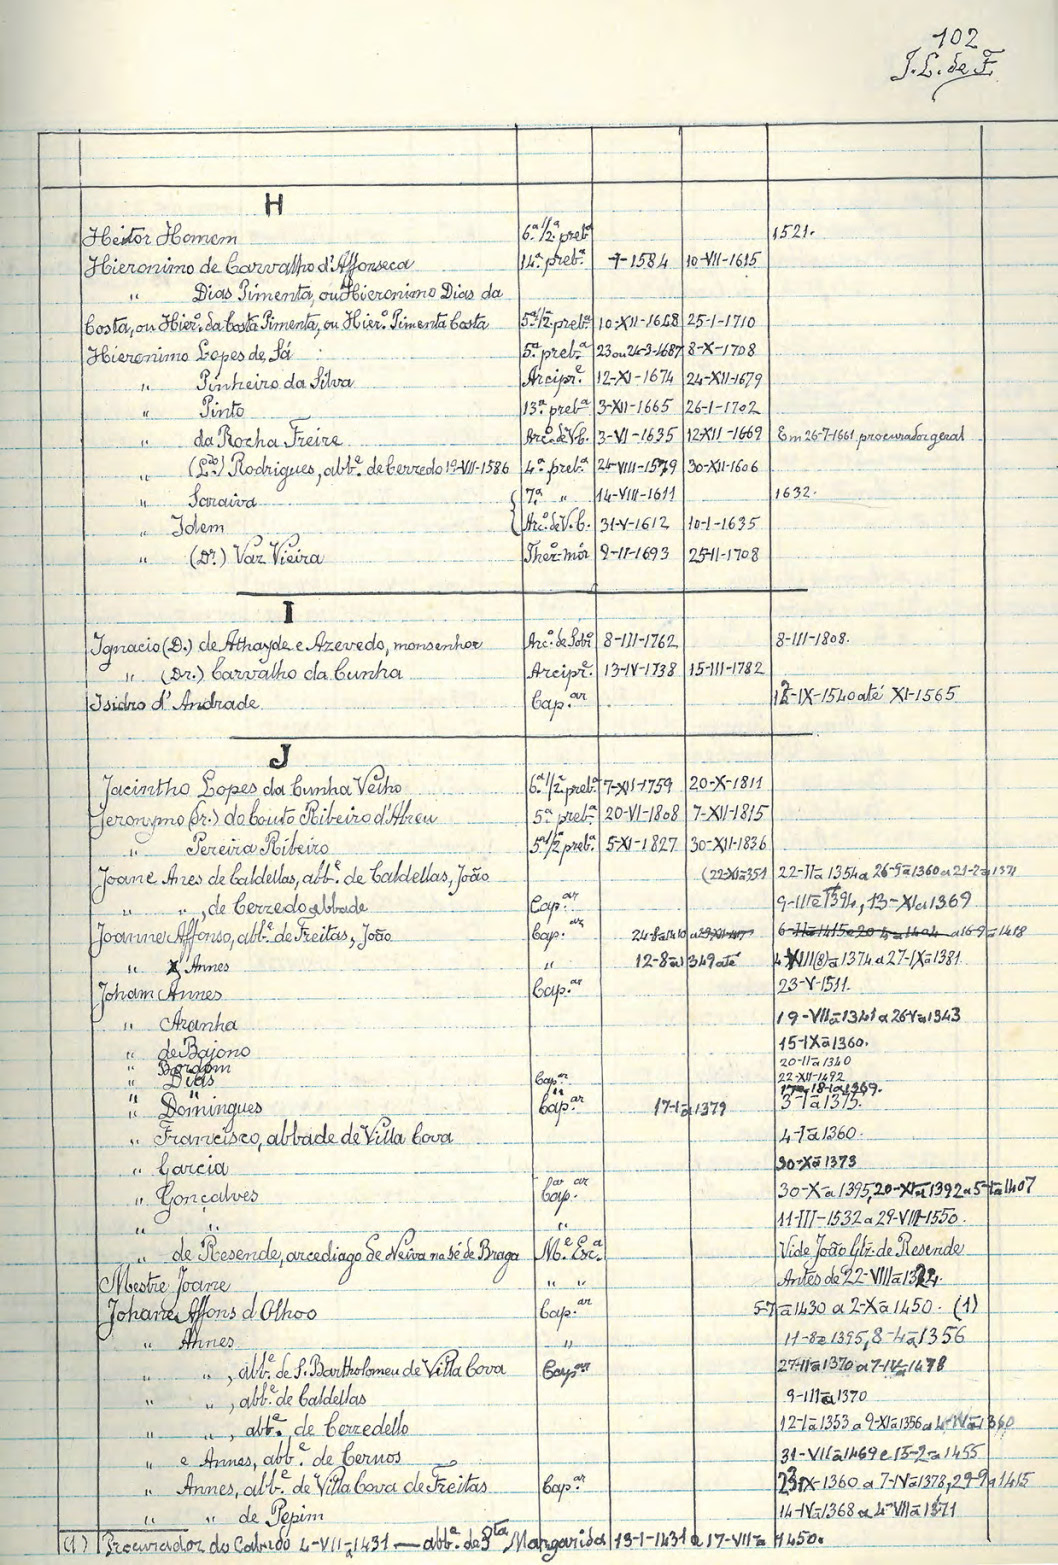 102
J. L. de F.
H
Heitor Homem 6.ª 1/2 preb.ª 1521.
Hieronimo de Carvalho d'Affonseca 14.ª preb.ª -7-1584 10-VII-1615
" Dias Pimenta, ou Hieronimo Dias da
Costa, ou Hier.º da Costa Pimenta, ou Hier.º Pimenta Costa 5.ª 1/2 preb.ª 10-XII-1648 25-1-1710
Hieronimo Lopes de Sá 5.ª preb.ª 23 ou 24-3-1687 8-X-1708
" Pinheiro da Silva Arcipr.e 12-XI-1674 24-XII-1679
" Pinto 13.ª preb.ª 3-XII-1665 26-1-1702
" da Rocha Freire Arc.º de V.C. 3-VI-1635 12-XII-1669 Em 26-7-1661 procurador geral
" (L.do) Rodrigues, abb.e de Cerzedo 19-VII-1586 4.ª preb.ª 24-VIII-1579 30-XII-1606
" Saraiva 7.ª " 14-VIII-1611 1632.
" Idem Arc.º de V.C. 31-V-1612 10-1-1635
" (Dr.) Vaz Vieira Thez.º mór 9-II-1693 25-II-1708
I
Ignacio (D.) de Athayde e Azevedo, monsenhor Arc.º de Sob.º 8-III-1762 8-III-1808.
" (Dr.) Carvalho da Cunha Arcipr.e 13-IV-1738 15-III-1782
Isidro d'Andrade Cap.ar -IX-1540 até XI-1565
J
Jacintho Lopes da Cunha Velho 6.ª 1/2 preb.ª 7-XII-1759 20-X-1811
Jeronymo (Fr.) do Couto Ribeiro d'Abreu 5.ª preb.ª 20-VI-1808 7-XII-1815
" Pereira Ribeiro 5.ª 1/2 preb.ª 5-XI-1827 30-XII-1836
Joane Anes de Caldellas, abb.e de Caldellas, João (22-XI=351 22-II=1354 a 26-9=1360 a 21-2=1371
" ", de Cerzedo abbade Cap.ar 9-III=1394, 13-XI=1369
Joanne Affonso, abb.e de Freitas, João Cap.ar 24-8=1410 a a 16-9=1418
" Annes " 12-8=1349 até XIII(8)=1374 a 27-IX=1381
Joham Annes Cap.ar 23-V-1511.
" Aranha 19-VII=1341 a 26-V=1343
" de Bajono 15-IX=1360.
" Bordom 20-II=1340
" Dias Cap.ar 22-XII-1492
" " " 18-1=1369.
" Domingues Cap.ar 17-1=1379 3-1=1375.
" Francisco, abbade de Villa Cova 4-1=1360.
" Garcia 30-X=1373
" Gonçalves Cap.ar 30-X=1395, 20-XI=1392 a 5-1=1407
" " " 11-III-1532 a 29-VIII-1550.
" de Resende, arcediago de Neiva na sé de Braga M.e Esc.a Vide João Glz. de Resende
Mestre Joane " " Antes de 22-VIII=
Johane Affons d'Olhoo Cap.ar 5-7=1430 a 2-X=1450. (1)
" Annes " 11-8=1395, 8-4=1356
" ", abb.e de S. Bartholomeu de Villa Cova Cap.ar 27-II=1370 a 7-IV=1478
" ", abb.e de Caldellas 9-III=1370
" ", abb.e de Cerzedello 12-1=1353 a 9-XI=1356 a 4-IV=1360
" e Annes, abb.e de Cernos 31-VII=1469 e 15-2=1455
" Annes, abb.e de Villa Cova de Freitas Cap.ar IX-1360 a 7-IV=1378, 29-9=1415
" " de Pepim 14-IV=1368 a 4-VII=1371
(1) Procurador do Cabido 4-VII=1431 — abb.e de S.ta Margarida 13-1-1431 a 17-VII=1450.